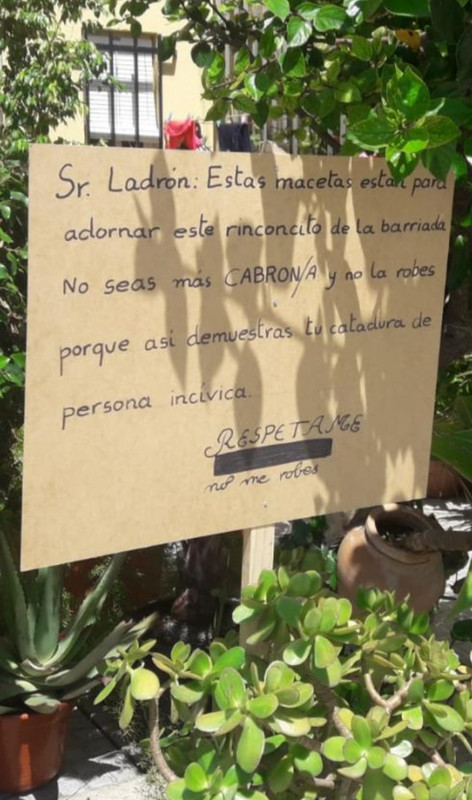 Sr. Ladrón: Estas macetas estan para
adornar este rinconcito de la barriada
No seas más CABRON/A y no la robes
porque asi demuestras tu catadura de
persona incívica.
RESPETAME
no me robes